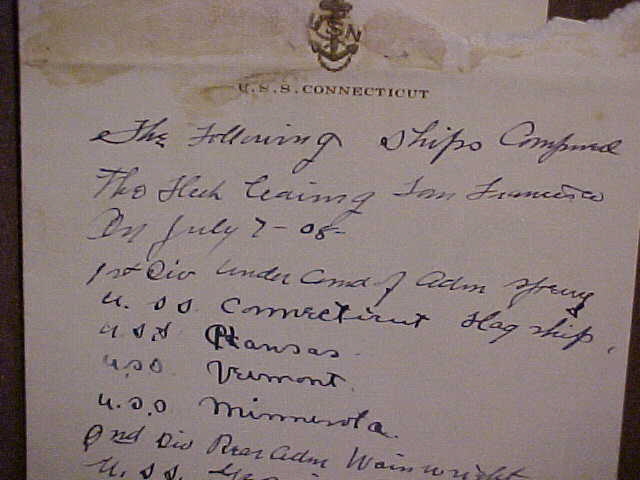 USN
U.S.S. CONNECTICUT
The Following Ships Composed
The Fleet leaving San Francisco
On July 7-08-
1st Div under Comd of Adm Sperry
U.SS. Connecticut Flag ship,
U.S.S Kansas.
U.S.S Vermont.
U.S.S Minnesota.
2nd Div Rear Adm Wainwright
U.SS.